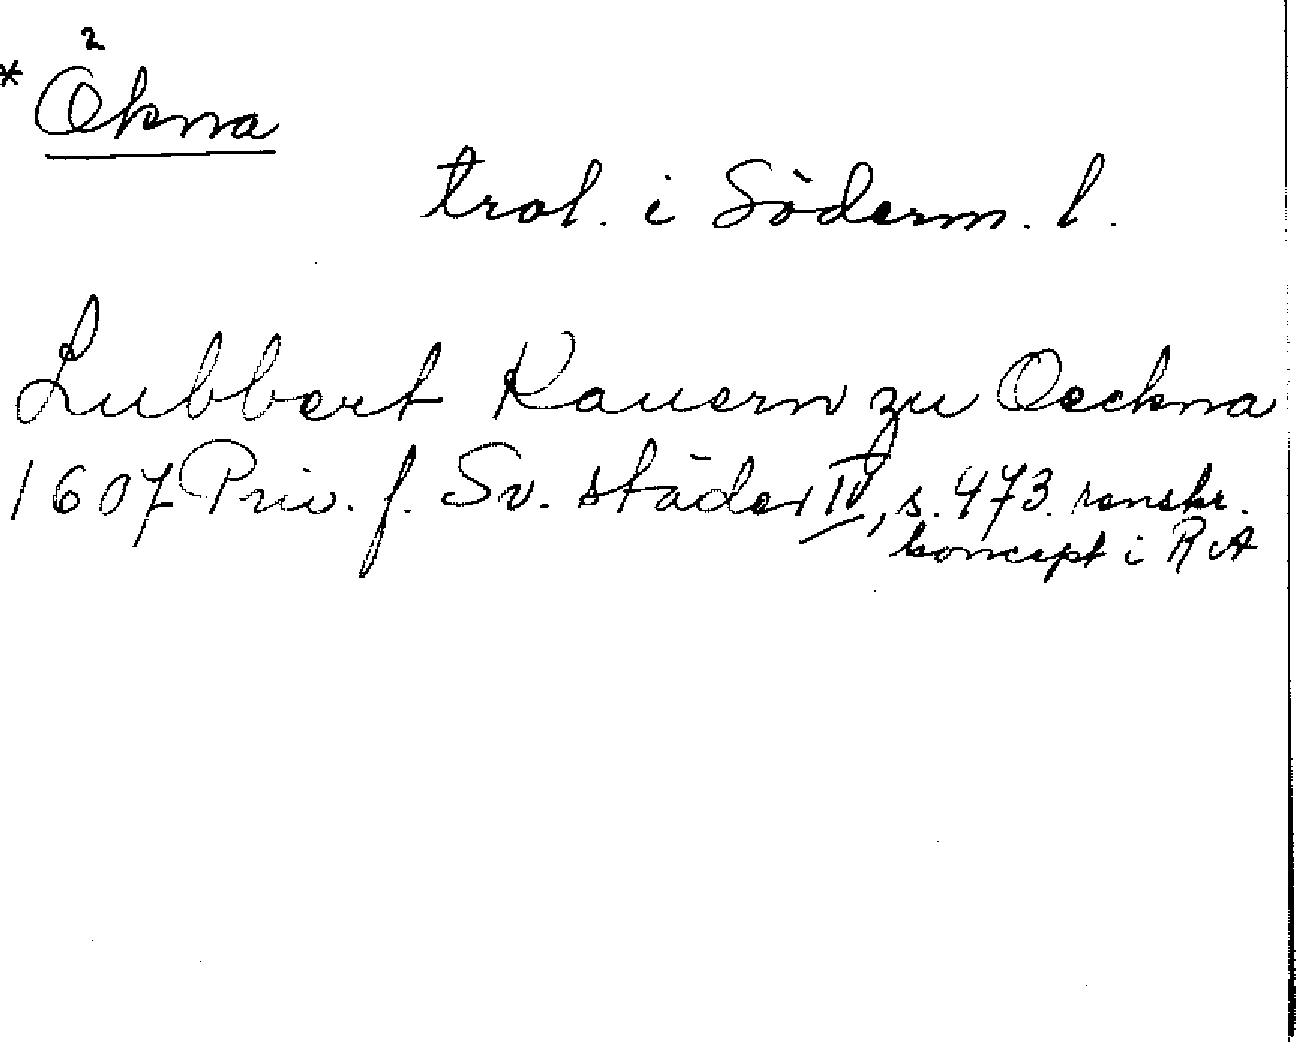 * Ökna
trol. i Söderm. l.
Lubbert Kauern zu Oeckna
1607 Priv. f. Sv. städer IV, s. 473. renskr.
koncept i RA